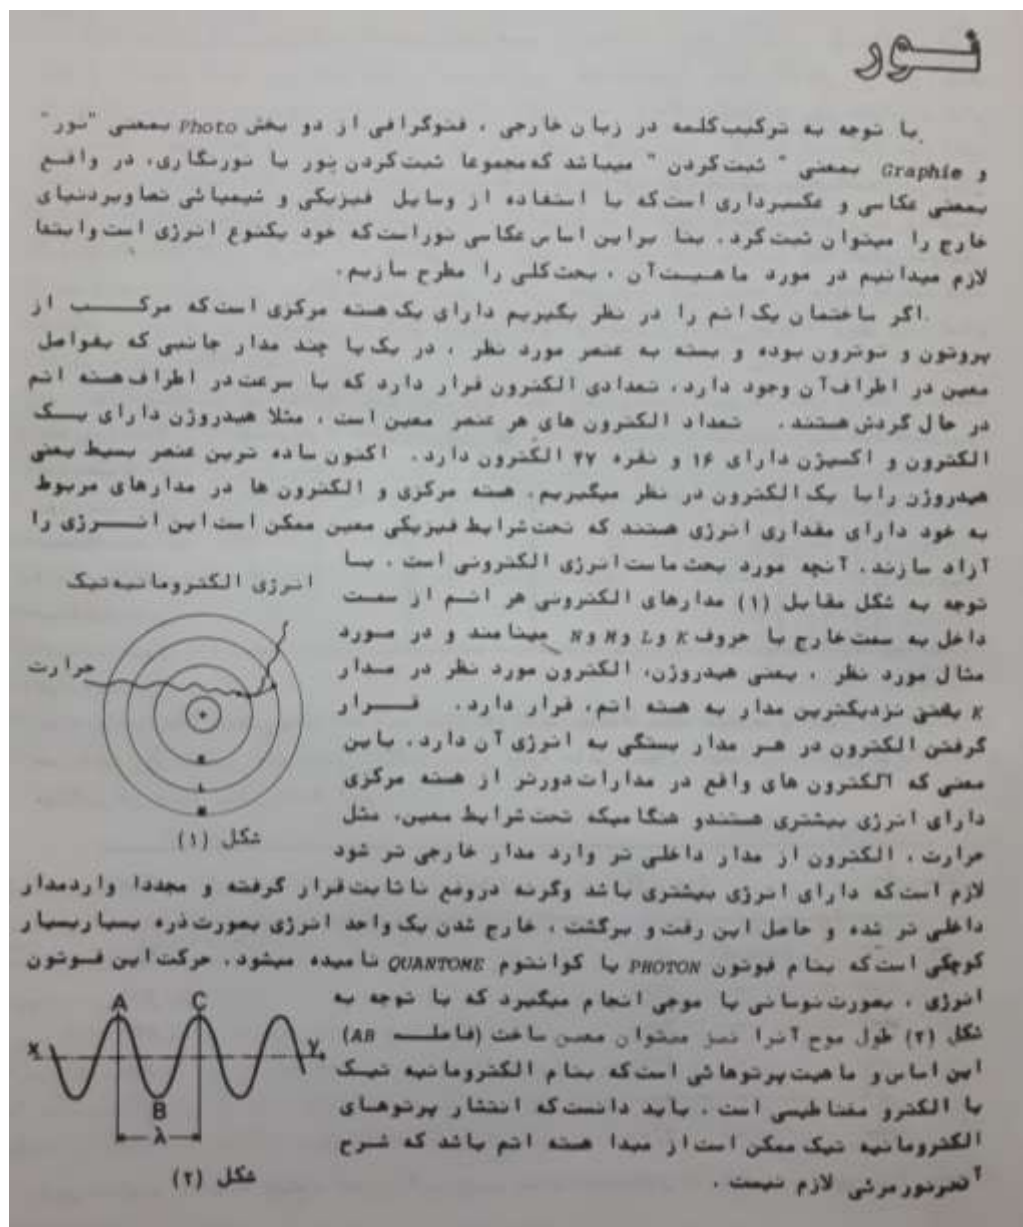 نور
با توجه به ترکیب کلمه در زبان خارجی ، فتوگرافی از دو بخش Photo بمعنی "نور"
و Graphie بمعنی " ثبت کردن " میباشد که مجموعا ثبت کردن نور یا نورنگاری، در واقع
بمعنی عکاسی و عکسبرداری است که با استفاده از وسایل فیزیکی و شیمیائی تصاویر دنیای
خارج را میتوان ثبت کرد . بنا براین اساس عکاسی نور است که خود یکنوع انرژی است و ابتدا
لازم میدانیم در مورد ماهیت آن ، بحث کلی را مطرح سازیم .
اگر ساختمان یک اتم را در نظر بگیریم دارای یک هسته مرکزی است که مرکب از
پروتون و نوترون بوده و بسته به عنصر مورد نظر ، در یک یا چند مدار جانبی که بفواصل
معین در اطراف آن وجود دارد ، تعدادی الکترون قرار دارد که با سرعت در اطراف هسته اتم
در حال گردش هستند . تعداد الکترون های هر عنصر معین است ، مثلا هیدروژن دارای یک
الکترون و اکسیژن دارای ۱۶ و نقره ۴۷ الکترون دارد . اکنون ساده ترین عنصر بسیط یعنی
هیدروژن را با یک الکترون در نظر میگیریم. هسته مرکزی و الکترون ها در مدارهای مربوط
به خود دارای مقداری انرژی هستند که تحت شرایط فیزیکی معین ممکن است این انرژی را
آزاد سازند . آنچه مورد بحث ماست انرژی الکترونی است . با
توجه به شکل مقابل (۱) مدارهای الکترونی هر اتم از سمت
داخل به سمت خارج با حروف K و L و M و N مینامند و در مورد
مثال مورد نظر ، یعنی هیدروژن، الکترون مورد نظر در مدار
K یعنی نزدیکترین مدار به هسته اتم، قرار دارد . قرار
گرفتن الکترون در هر مدار بستگی به انرژی آن دارد . باین
معنی که الکترون های واقع در مدارات دورتر از هسته مرکزی
دارای انرژی بیشتری هستند و هنگامیکه تحت شرایط معین، مثل
حرارت ، الکترون از مدار داخلی تر وارد مدار خارجی تر شود
لازم است که دارای انرژی بیشتری باشد وگرنه در وضع ناثابت قرار گرفته و مجددا وارد مدار
داخلی تر شده و حاصل این رفت و برگشت ، خارج شدن یک واحد انرژی بصورت ذره بسیار بسیار
کوچکی است که بنام فوتون PHOTON یا کوانتوم QUANTOME نامیده میشود . حرکت این فوتون
انرژی ، بصورت نوسانی یا موجی انجام میگیرد که با توجه به
شکل (۲) طول موج آنرا نیز میتوان معین ساخت (فاصله AB)
این اساس و ماهیت پرتوهائی است که بنام الکترومانیه تیک
یا الکترو مغناطیسی است . باید دانست که انتشار پرتوهای
الکترومانیه تیک ممکن است از مبدا هسته اتم باشد که شرح
مرئی لازم نیست .
انرژی الکترومانیه تیک
حرارت
+
K
L
M
شکل (۱)
A C
X Y
B
λ
شکل (۲)